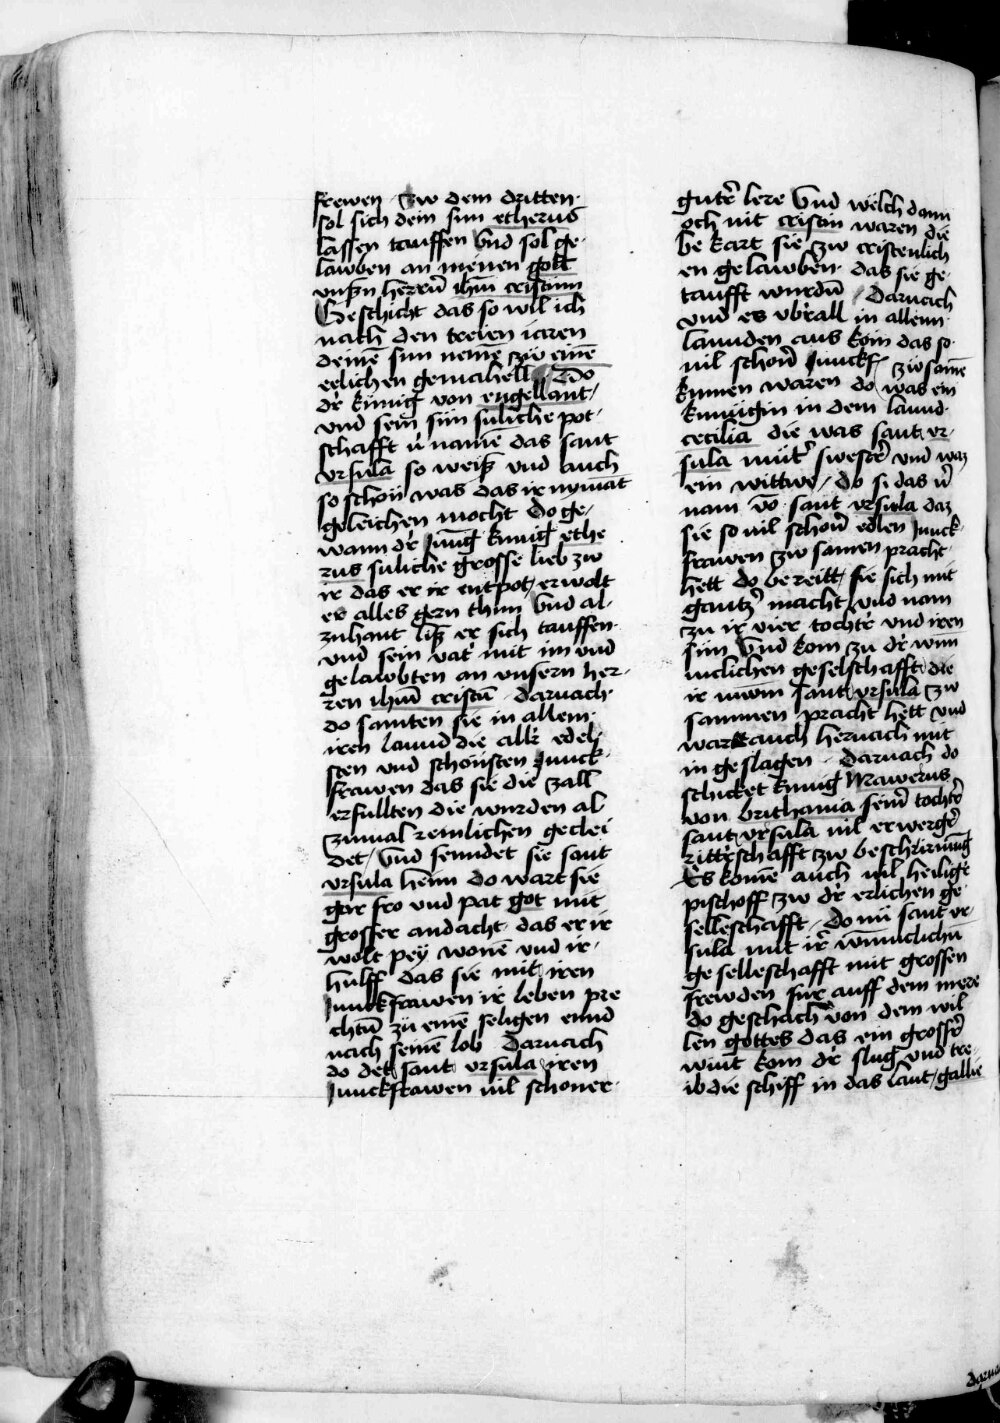 frewen · Zw dem dritten ·
sol sich dein sun etherus
lassen tauffen Vnd sol ge-
lawben an meinen gott
vnßn herrn̄ ihm̄ cristum
Geschicht das so wil ich
nach den treien iaren
deinē sun nemē zw einē
erlichen gemahell / Do
dr̄ künig von engellant /
vnd sein sun süliche pot-
schafft v̄namē das sant
vrsula so weiß vnd auch
so schon was das ir nymāt
geleichen mocht Do ge-
wann dr̄ Jung künig ethe
rus suliche grosse lieb zw
ir das er ir entpot / er wolt
er alles gern thun Vnd al-
zuhant liß er sich tauffen ·
vnd sein vatr̄ mit im vnd
gelawbten an vnsern her-
ren ihm̄ cristū · Darnach
do samten sie in allem ·
iren lannd die allr̄ edel-
sten vnd schonsten Junck-
frawen das sie die zall
erfullten die wurden al
zumal reinlichen geclei
det / Vnd senndet sie sant
vrsula heim do wart sie
gar fro vnd pat got mit
grosser andacht · das er ir
wolt pey wonē vnd ir ·
hulff das sie mit iren
Junckfrawen ir leben pre
chtn̄ zü einē seligen ennd
nach seinē lob Darnach
do det sant vrsula iren
Junckfrawen vil schoner ·
gutr̄ lere Vnd welch dann
och nit cristin waren die
be kart sie zw cristenlich
en gelawben · das sie ge-
taufft wurdn̄ / Darnach
vnd es vbrall in allenn ·
lannden aus kom das so ·
vil schonr̄ Junckf zw samē
kumen waren do was ein
kunigin in dem lannd ·
cecilia die was sant vr-
sula mutr̄ swestr̄ vnd waz
ein wittwe / do si das v̄
nam vō sant vrsula daz
sie so vil schonr̄ edlen Junck-
frawen zw samen pracht
hett do bereitt sie sich mit
gantzr̄ macht vnd nam
zu ir vier tochtr̄ vnd iren
sun Vnd kom zu dr̄ wun
niclichen geselschafft die
ir mum sant vrsula zw
sammen pracht hett vnd
wart auch hernach mit
in geslagen · Darnach do
schicket künig Mawerus
von brithania seinr̄ tochtr̄
sant vrsula vil erwergr̄
rittrschafft zw beschirmung
Es komē auch vil heiligr̄
pischoff zw dr̄ erlichen ge-
selleschafft / Do nū sant vr-
sula mit ir̄ wunniclichn̄
geselleschafft mit grossen
frewden fur auff dem mere
do geschach von dem wil
len gottes das ein grossr̄
wint kom dr̄ slug vnd tre-
ib die schiff in das lant / gallie